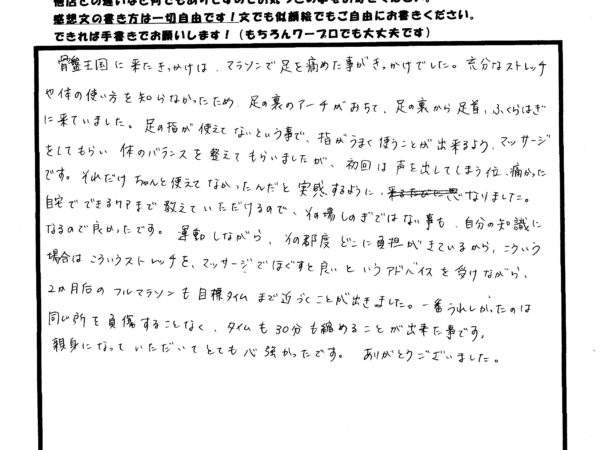 感想文の書き方は一切自由です！文でも似顔絵でもご自由にお書きください。
できれば手書きでお願いします！（もちろんワープロでも大丈夫です）
骨盤王国に来たきっかけは、マラソンで足を痛めた事がきっかけでした。充分なストレッチ
や体の使い方を知らなかったため、足の裏のアーチがおちて、足の裏から足首、ふくらはぎ
に来ていました。足の指が使えてないという事で、指がうまく使うことが出来るよう、マッサージ
をしてもらい体のバランスを整えてもらいましたが、初回は声を出してしまう位、痛かった
です。それだけちゃんと使えてなかったんだと実感するように、なりました。
自宅でできるケアまで教えていただけるので、その場しのぎではない事も、自分の知識に
なるので良かったです。運動しながら、その都度どこに負担がきているから、こういう
場合はこういうストレッチを、マッサージでほぐすと良いというアドバイスを受けながら、
2か月後のフルマラソンも目標タイムまで近づくことが出きました。一番うれしかったのは
同じ所を負傷することなく、タイムも30分も縮めることが出来た事です。
親身になっていただいてとても心強かったです。ありがとうございました。